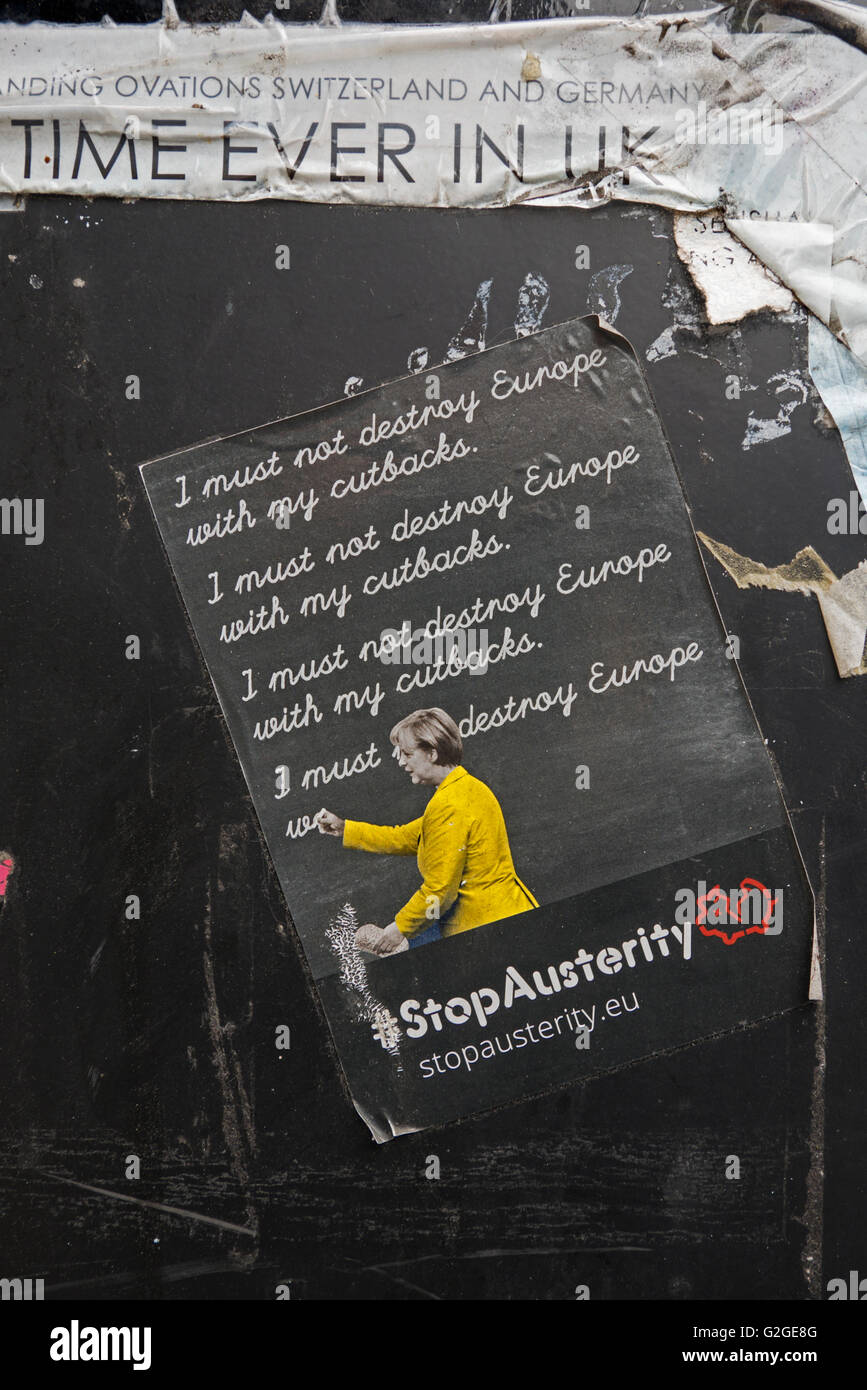 ANDING OVATIONS SWITZERLAND AND GERMANY
TIME EVER IN UK
I must not destroy Europe
with my cutbacks.
I must not destroy Europe
with my cutbacks.
I must not destroy Europe
with my cutbacks.
I must destroy Europe
#StopAusterity
stopausterity.eu
alamy
Image ID: G2GE8G
www.alamy.com